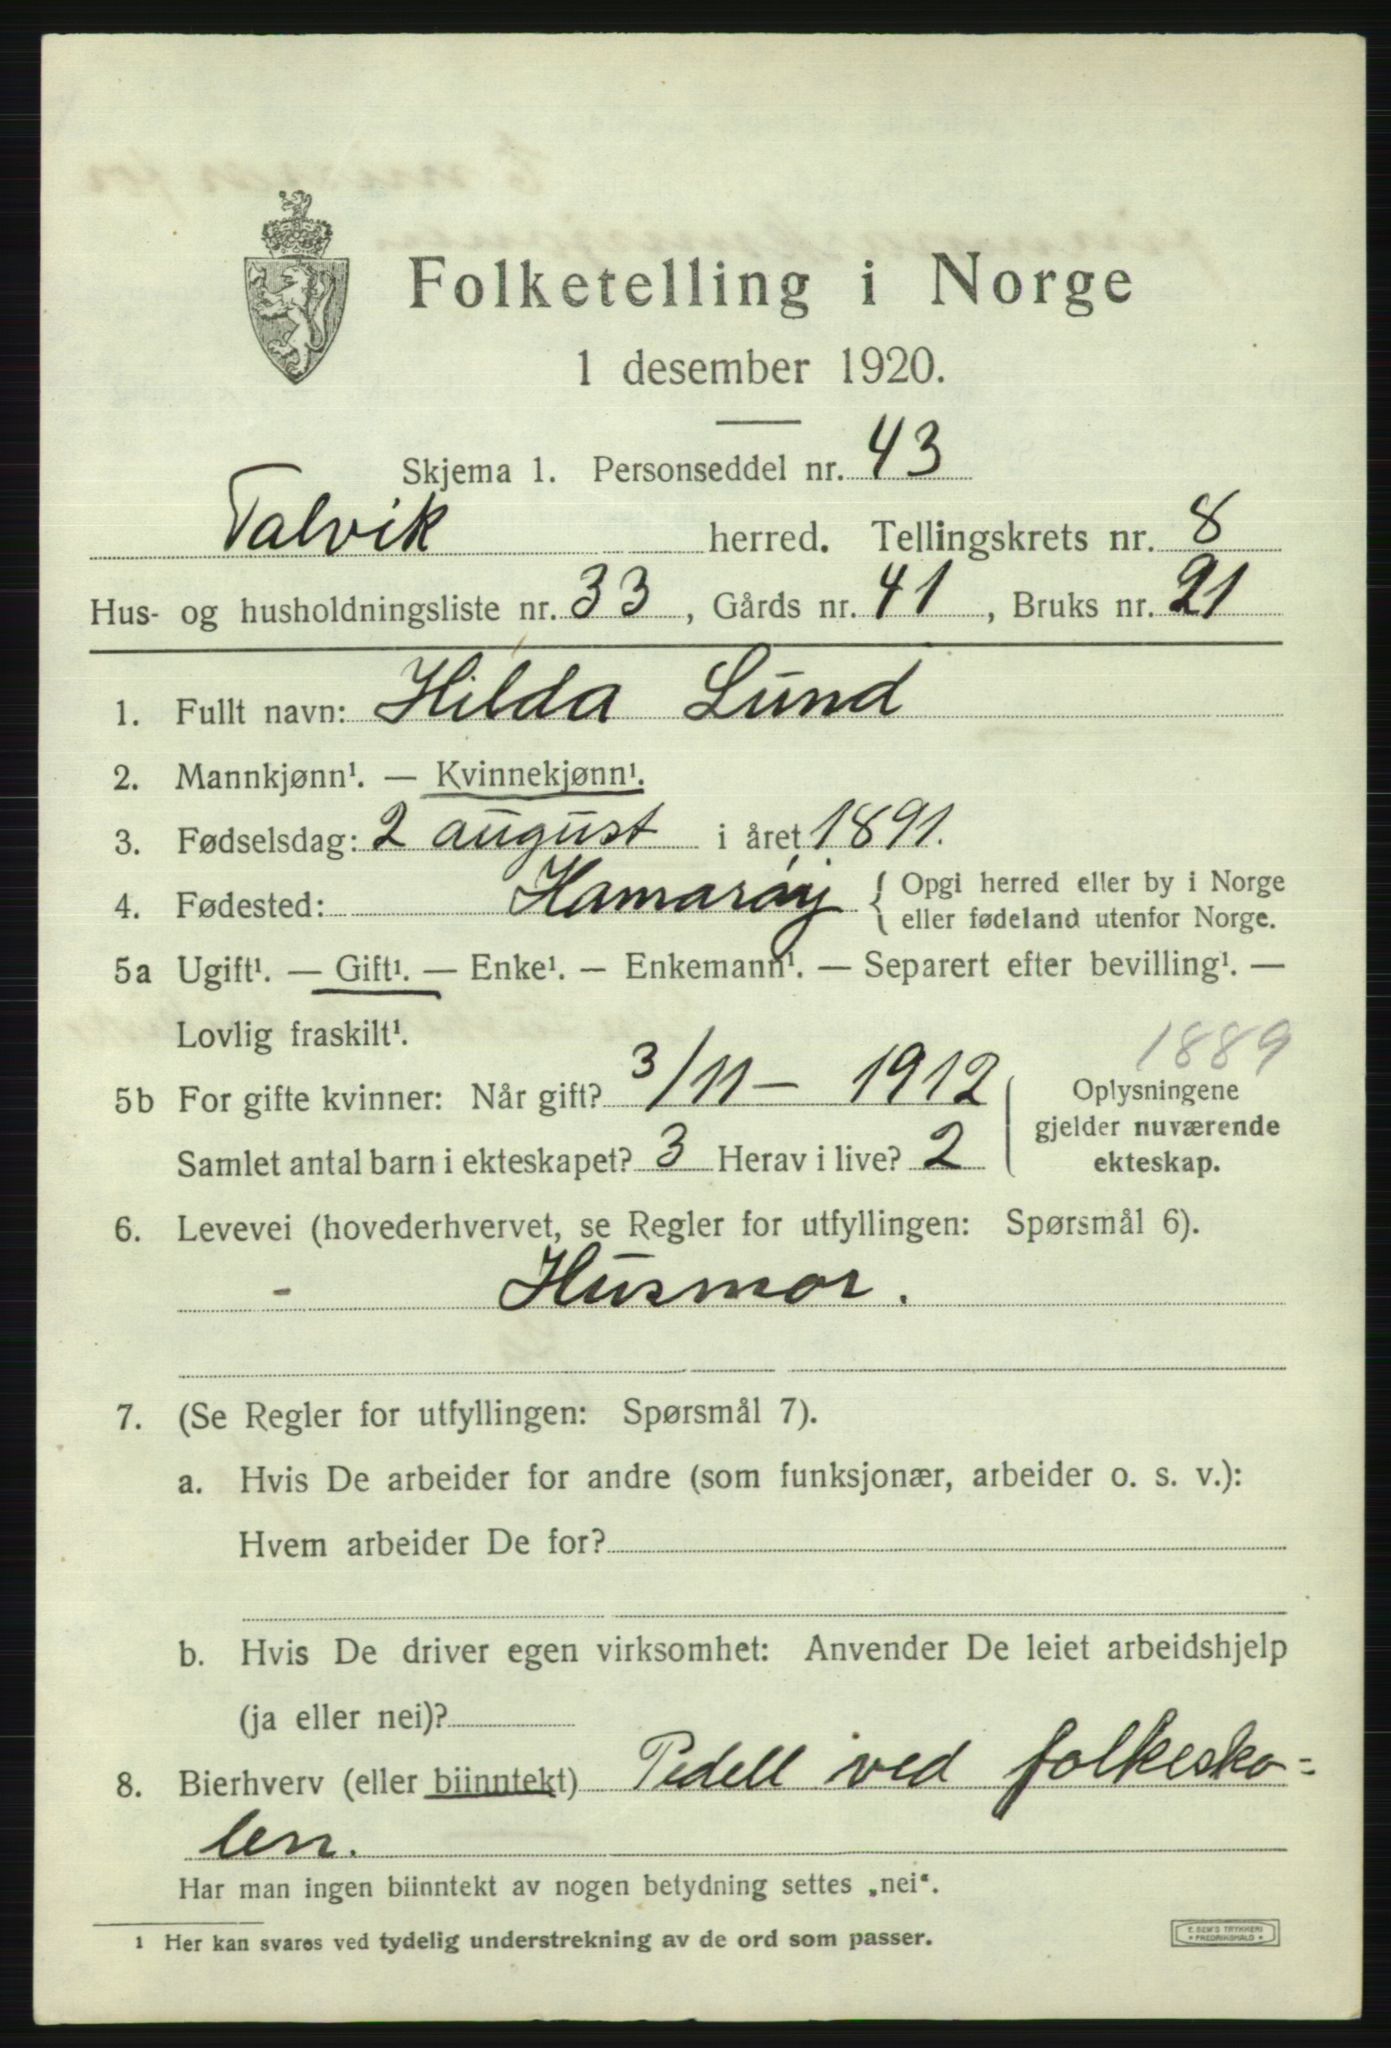 Folketelling i Norge
1 desember 1920.
Skjema 1. Personseddel nr. 43
Talvik herred. Tellingskrets nr. 8
Hus- og husholdningsliste nr. 33, Gårds nr. 41, Bruks nr. 21
1. Fullt navn: Hilda Lund
2. Mannkjønn¹. — Kvinnekjønn¹.
3. Fødselsdag: 2 august i året 1891.
4. Fødested: Hamarøy { Opgi herred eller by i Norge
eller fødeland utenfor Norge.
5a Ugift¹. — Gift¹. — Enke¹. — Enkemann¹. — Separert efter bevilling¹. —
Lovlig fraskilt¹.
1889
5b For gifte kvinner: Når gift? 3/11 – 1912
Samlet antal barn i ekteskapet? 3 Herav i live? 2
Oplysningene
gjelder nuværende
ekteskap.
6. Levevei (hovederhvervet, se Regler for utfyllingen: Spørsmål 6).
Husmor.
7. (Se Regler for utfyllingen: Spørsmål 7).
a. Hvis De arbeider for andre (som funksjonær, arbeider o. s. v.):
Hvem arbeider De for?
b. Hvis De driver egen virksomhet: Anvender De leiet arbeidshjelp
(ja eller nei)?
8. Bierhverv (eller biinntekt) Pedell ved folkesko=
len.
Har man ingen biinntekt av nogen betydning settes „nei“.
¹ Her kan svares ved tydelig understrekning av de ord som passer.
E. SEM'S TRYKKERI
FREDRIKSHALD